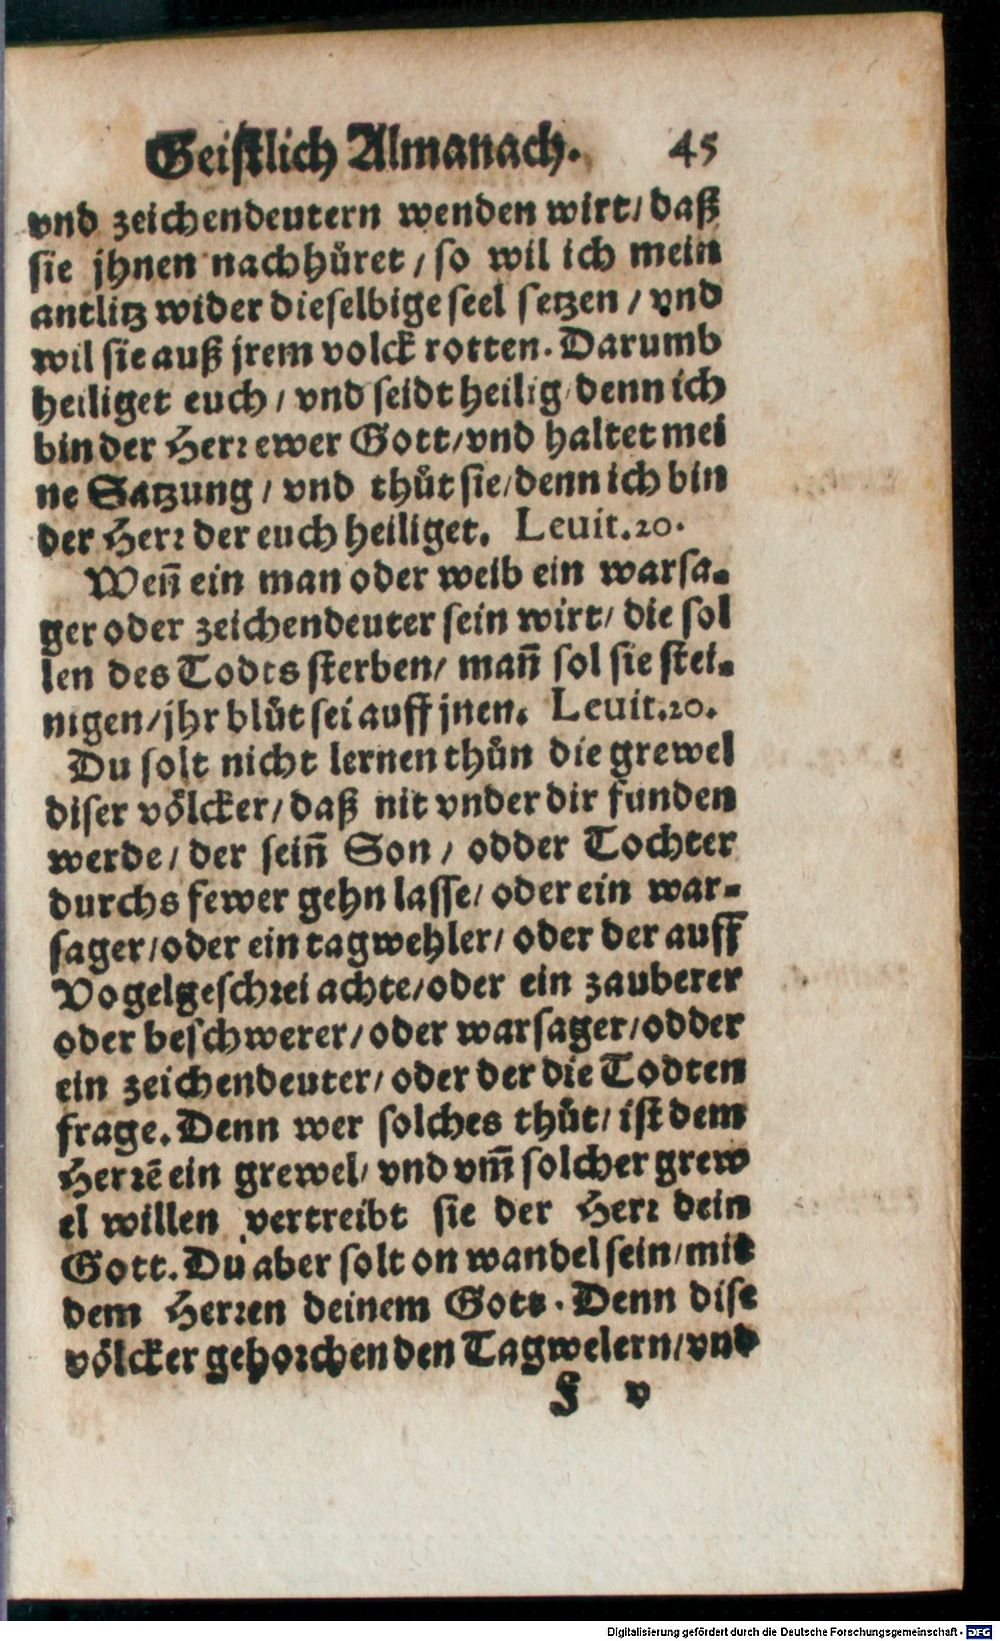 Geistlich Almanach. 45
vnd zeichendeutern wenden wirt/ daß
sie jhnen nachhůret / so wil ich mein
antlitz wider dieselbige seel setzen / vnd
wil sie auß jrem volck rotten. Darumb
heiliget euch / vnd seidt heilig/ denn ich
bin der Herr ewer Gott/ vnd haltet mei
ne Satzung / vnd thůt sie/ denn ich bin
der Herr der euch heiliget. Leuit.20.
Weñ ein man oder weib ein warsa-
ger oder zeichendeuter sein wirt/ die sol
len des Todts sterben/ mañ sol sie stei-
nigen/ jhr blůt sei auff jnen. Leuit.20.
Du solt nicht lernen thůn die grewel
diser vőlcker/ daß nit vnder dir funden
werde/ der seiñ Son / odder Tochter
durchs fewer gehn lasse/ oder ein war-
sager/ oder ein tagwehler/ oder der auff
Vogelgeschrei achte/ oder ein zauberer
oder beschwerer/ oder warsager/ odder
ein zeichendeuter/ oder der die Todten
frage. Denn wer solches thůt/ ist dem
Herrē ein grewel/ vnd vm̃ solcher grew
el willen vertreibt sie der Herr dein
Gott. Du aber solt on wandel sein/ mit
dem Herren deinem Gott. Denn dise
vőlcker gehorchen den Tagwelern/ vnd
F v
Digitalisierung gefördert durch die Deutsche Forschungsgemeinschaft - DFG